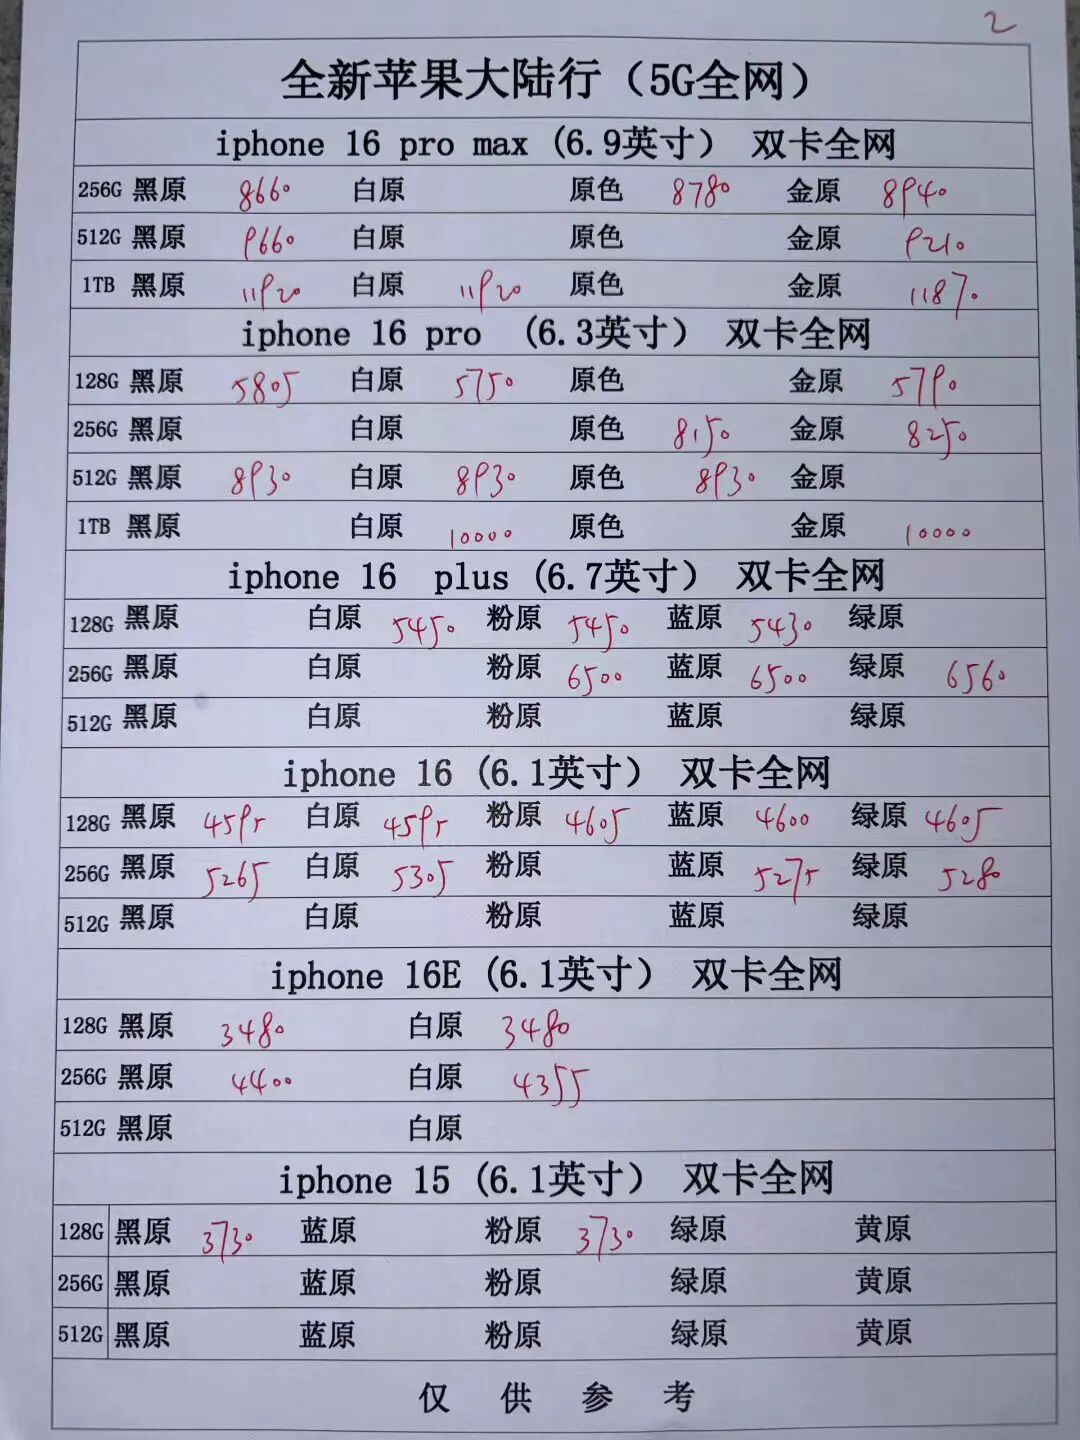 2
全新苹果大陆行（5G全网）
iphone 16 pro max (6.9英寸） 双卡全网
256G 黑原 8660 白原 原色 8780 金原 8940
512G 黑原 9660 白原 原色 金原 9210
1TB 黑原 11920 白原 11920 原色 金原 11870
iphone 16 pro （6.3英寸） 双卡全网
128G 黑原 5805 白原 5750 原色 金原 5790
256G 黑原 白原 原色 8150 金原 8250
512G 黑原 8930 白原 8930 原色 8930 金原
1TB 黑原 白原 10000 原色 金原 10000
iphone 16 plus (6.7英寸） 双卡全网
128G 黑原 白原 5450 粉原 5450 蓝原 5430 绿原
256G 黑原 白原 粉原 6500 蓝原 6500 绿原 6560
512G 黑原 白原 粉原 蓝原 绿原
iphone 16 (6.1英寸） 双卡全网
128G 黑原 4595 白原 4595 粉原 4605 蓝原 4600 绿原 4605
256G 黑原 5265 白原 5305 粉原 蓝原 5275 绿原 5280
512G 黑原 白原 粉原 蓝原 绿原
iphone 16E (6.1英寸） 双卡全网
128G 黑原 3480 白原 3480
256G 黑原 4400 白原 4355
512G 黑原 白原
iphone 15 (6.1英寸） 双卡全网
128G 黑原 3730 蓝原 粉原 3730 绿原 黄原
256G 黑原 蓝原 粉原 绿原 黄原
512G 黑原 蓝原 粉原 绿原 黄原
仅 供 参 考